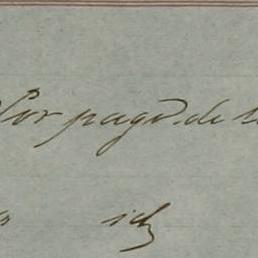 Por pago de
id